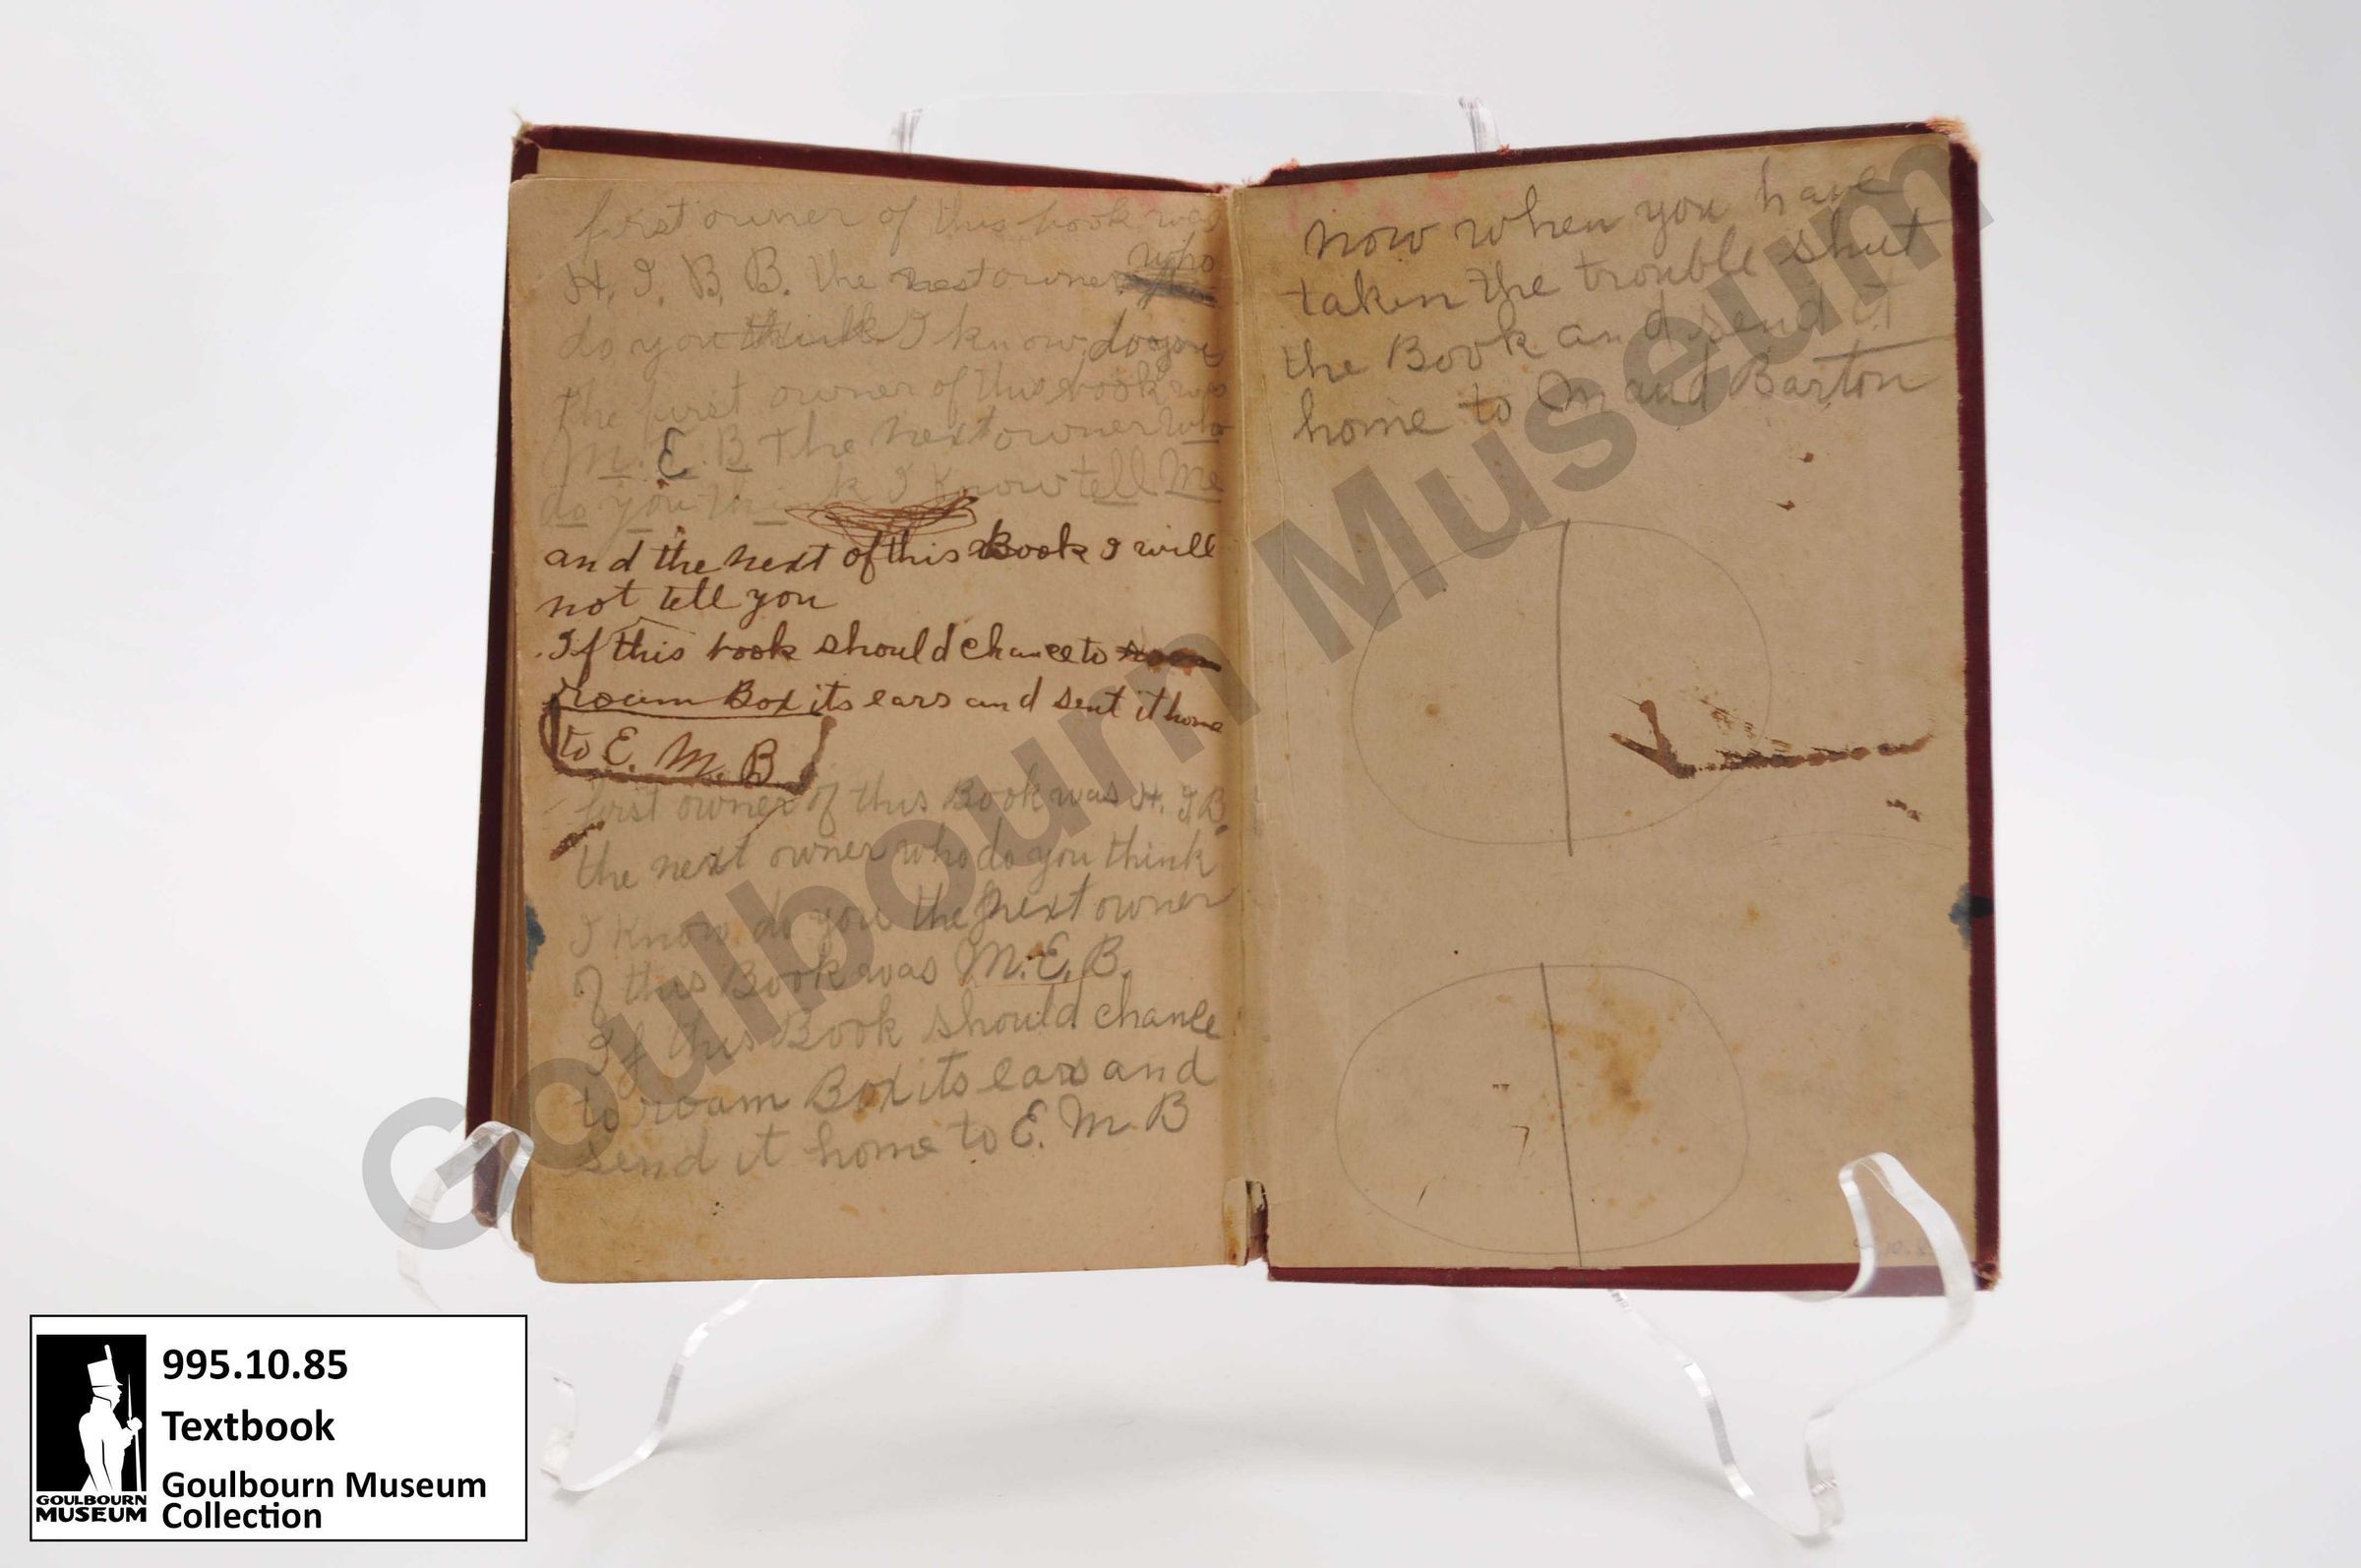 first owner of this book was
H. I. B. B. the next owner who
do you think I know do you
the first owner of this book was
M. E. B The next owner who
do you think I know tell Me
and the next of this Book I will
not tell you
If this book should chance to
roam Box its ears and sent it home
to E. M. B
first owner of this Book was H. I B.
the next owner who do you think
I know do you the next owner
of this Book was M. E. B.
If this Book should chance
to roam Box its ears and
send it home to E. M. B
now when you have
taken the trouble shut
the Book and send it
home to Maud Barton
Goulbourn Museum
995.10.85
Textbook
Goulbourn Museum
Collection
GOULBOURN
MUSEUM